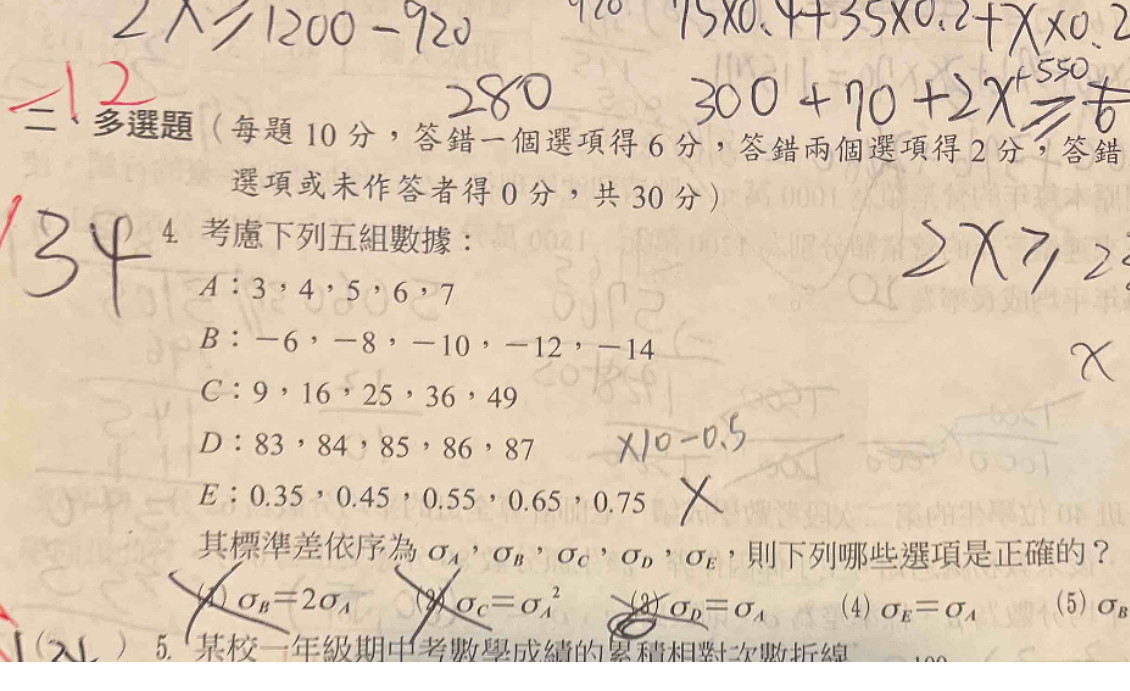 2x ≥ 1200 - 920
75×0.4+35×0.2+x×0.2
280
300 + 70 + 2x
+550
-12
二、多選題(每題 10 分,答錯一個選項得 6 分,答錯兩個選項得 2 分,答錯
選項或未作答者得 0 分,共 30 分)
34
) 4. 考慮下列五組數據:
2x ≥
A:3,4,5,6,7
B:-6,-8,-10,-12,-14
x
C:9,16,25,36,49
D:83,84,85,86,87
×10-0.5
E:0.35,0.45,0.55,0.65,0.75
其標準差依序為 σA,σB,σC,σD,σE,則下列哪些選項是正確的?
(1) σB=2σA (2) σC=σA² (3) σD=σA (4) σE=σA (5) σB
( ) 5. 某校一年級期中考數學成績的累積相對次數折線
100